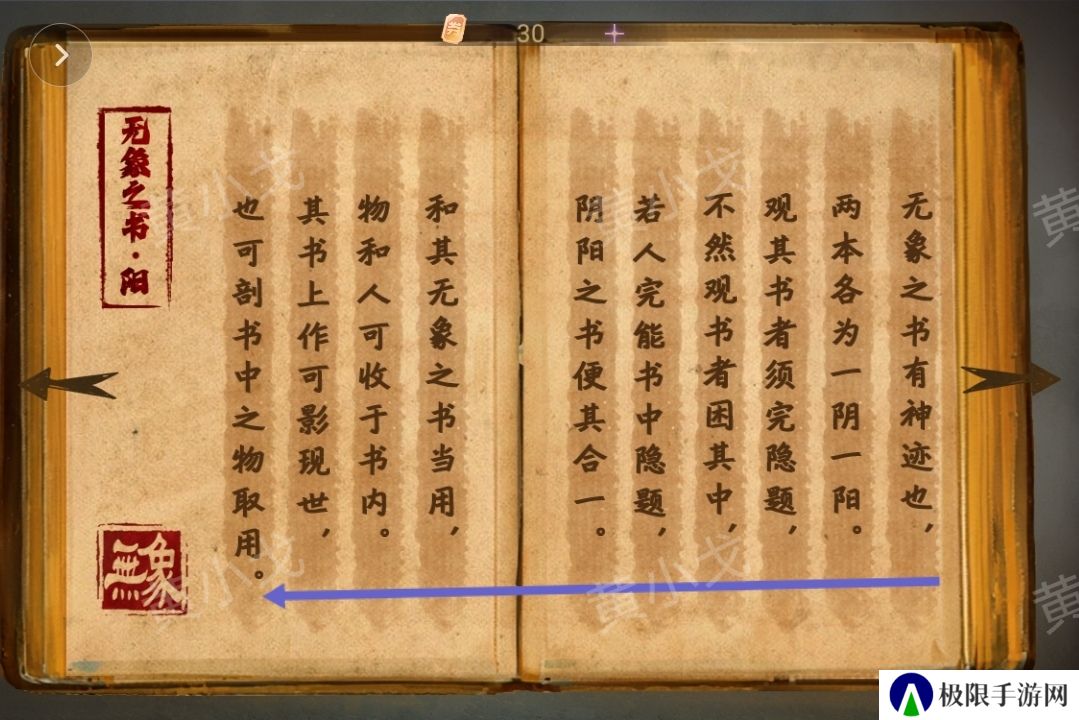 券
30
无象之书有神迹也，
两本各为一阴一阳。
观其书者须完隐题，
不然观书者困其中，
若人完能书中隐题，
阴阳之书便其合一。
和其无象之书当用，
物和人可收于书内。
其书上作可影现世，
也可剖书中之物取用。
无象之书·阳
無象
黄小戈
黄小戈
黄小戈
黄小戈
黄
黄
极限手游网